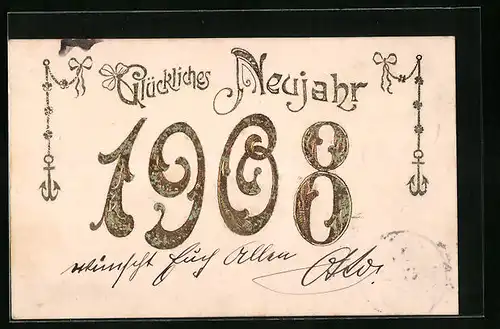 Glückliches Neujahr
1908
wünscht Euch Allen Otto.